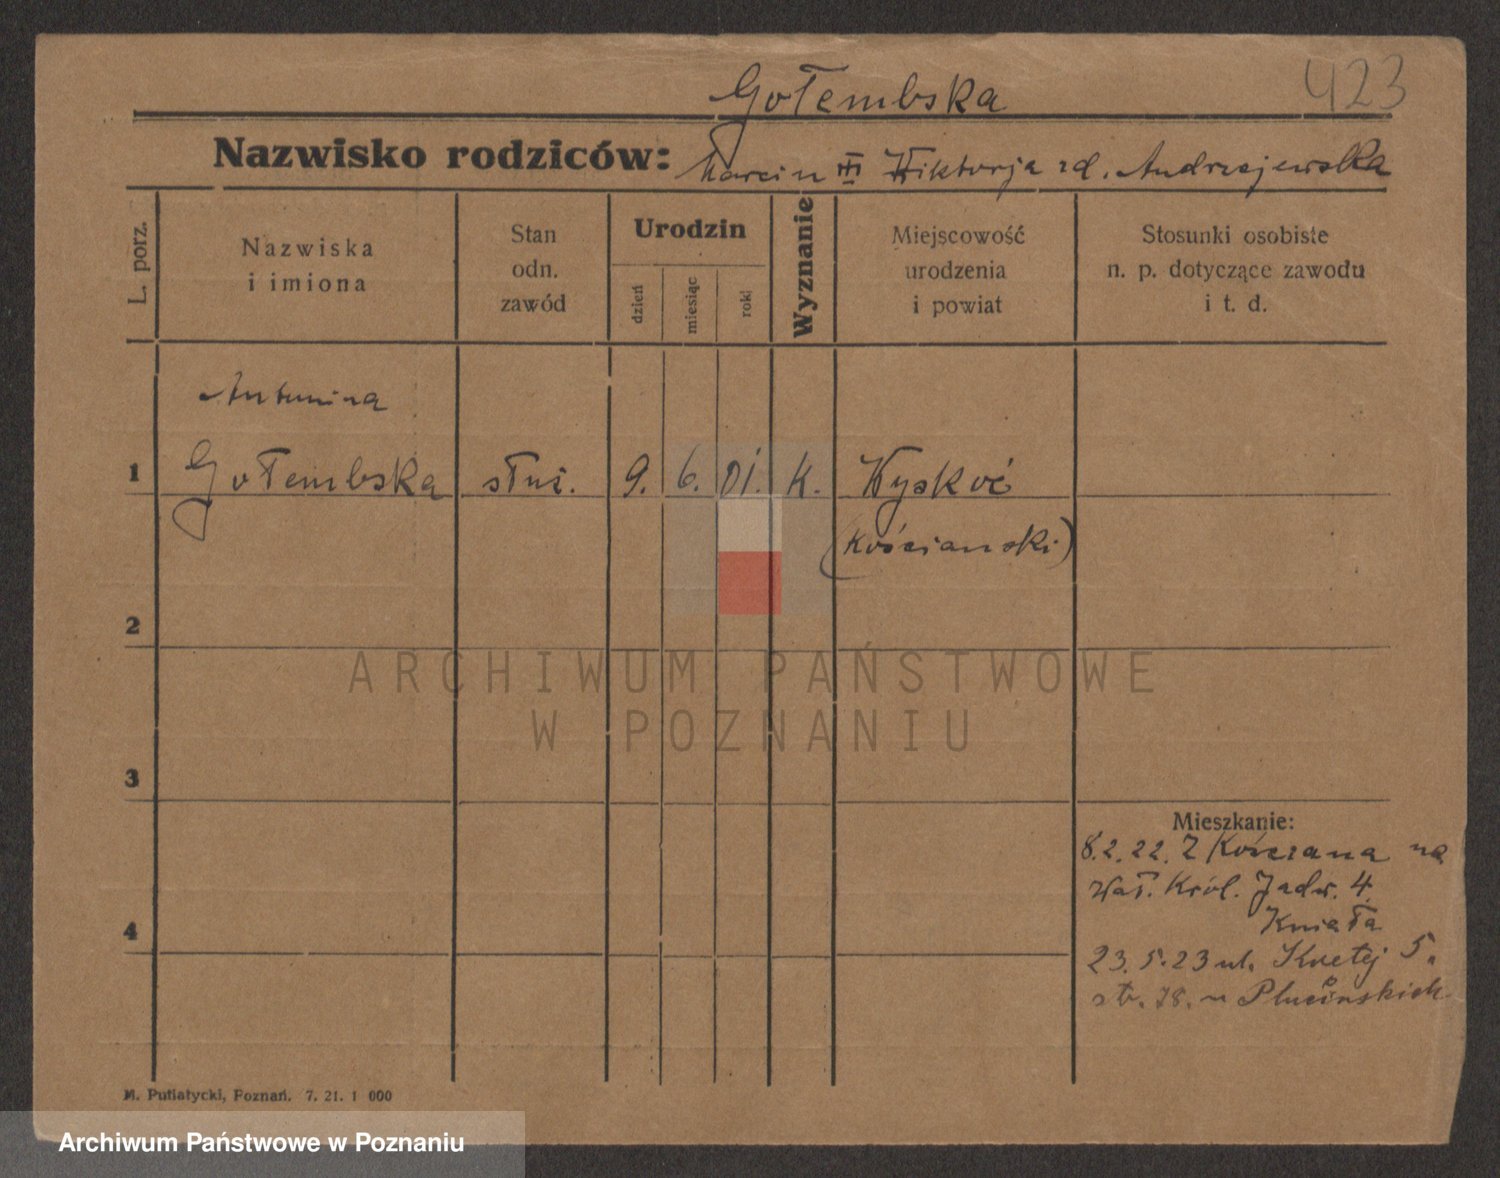 423
Gołembska
Nazwisko rodziców: Marcin Wiktorja zd. Andrzejewska
L. porz.
Nazwiska
i imiona
Stan
odn.
zawód
Urodzin
dzień
miesiąc
rok
Wyznanie
Miejscowość
urodzenia
i powiat
Stosunki osobiste
n. p. dotyczące zawodu
i t. d.
Antonina
1 Gołembska służ. 9. 6. 01. k. Wyskoć
(Kościański)
2
ARCHIWUM PAŃSTWOWE
W POZNANIU
3
Mieszkanie:
8.2.22. Z Kościana na
Wał. Król. Jadw. 4.
4
23.5.23 ul. 5.
str. 78. u Plucińskich
M. Putiatycki, Poznań. 7. 21. 1 000
Archiwum Państwowe w Poznaniu